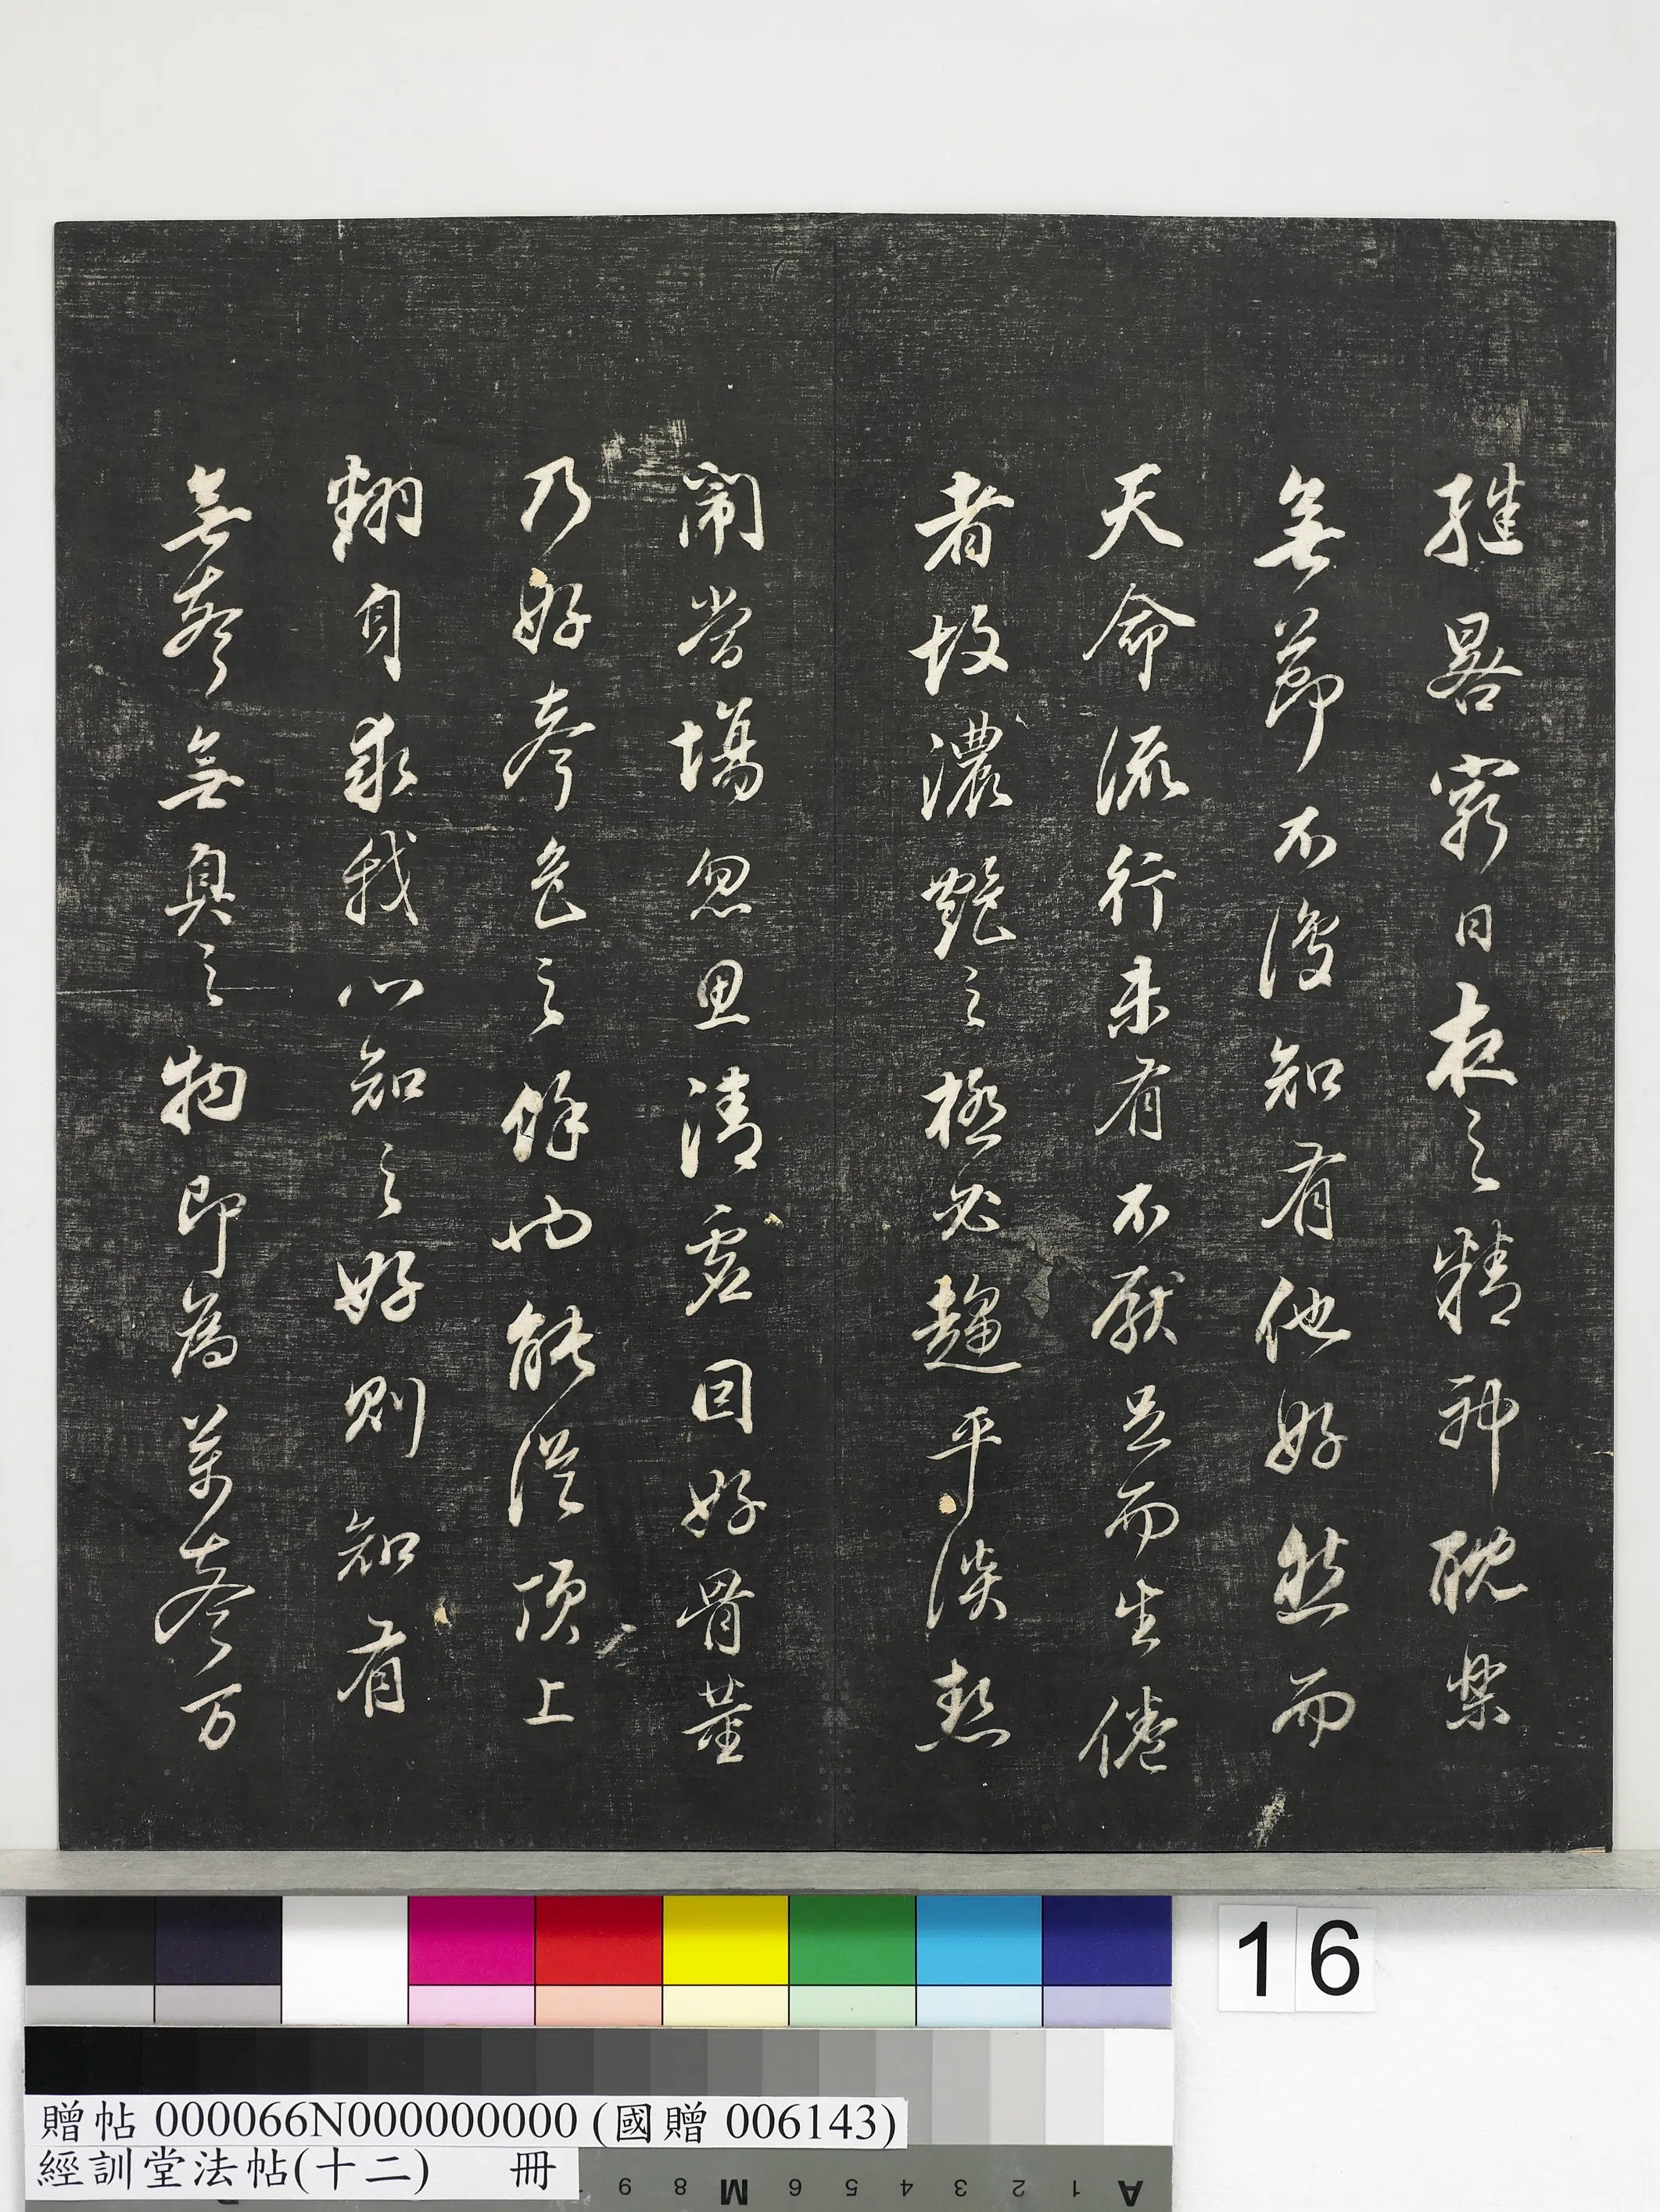 繼晷窮日夜之精神耽樂
無節不復知有他好然而
天命流行未有不厭足而生倦
者故濃艷之極必趨平淡熱
鬧當場忽思清虛因好骨董
乃好聲色之餘也能從頂上
翻身求我心知之好則知有
無聲無臭之物即為萬聲万
16
贈帖 000066N000000000 (國贈 006143)
經訓堂法帖(十二) 冊
9 8 M 6 5 4 3 2 1 A